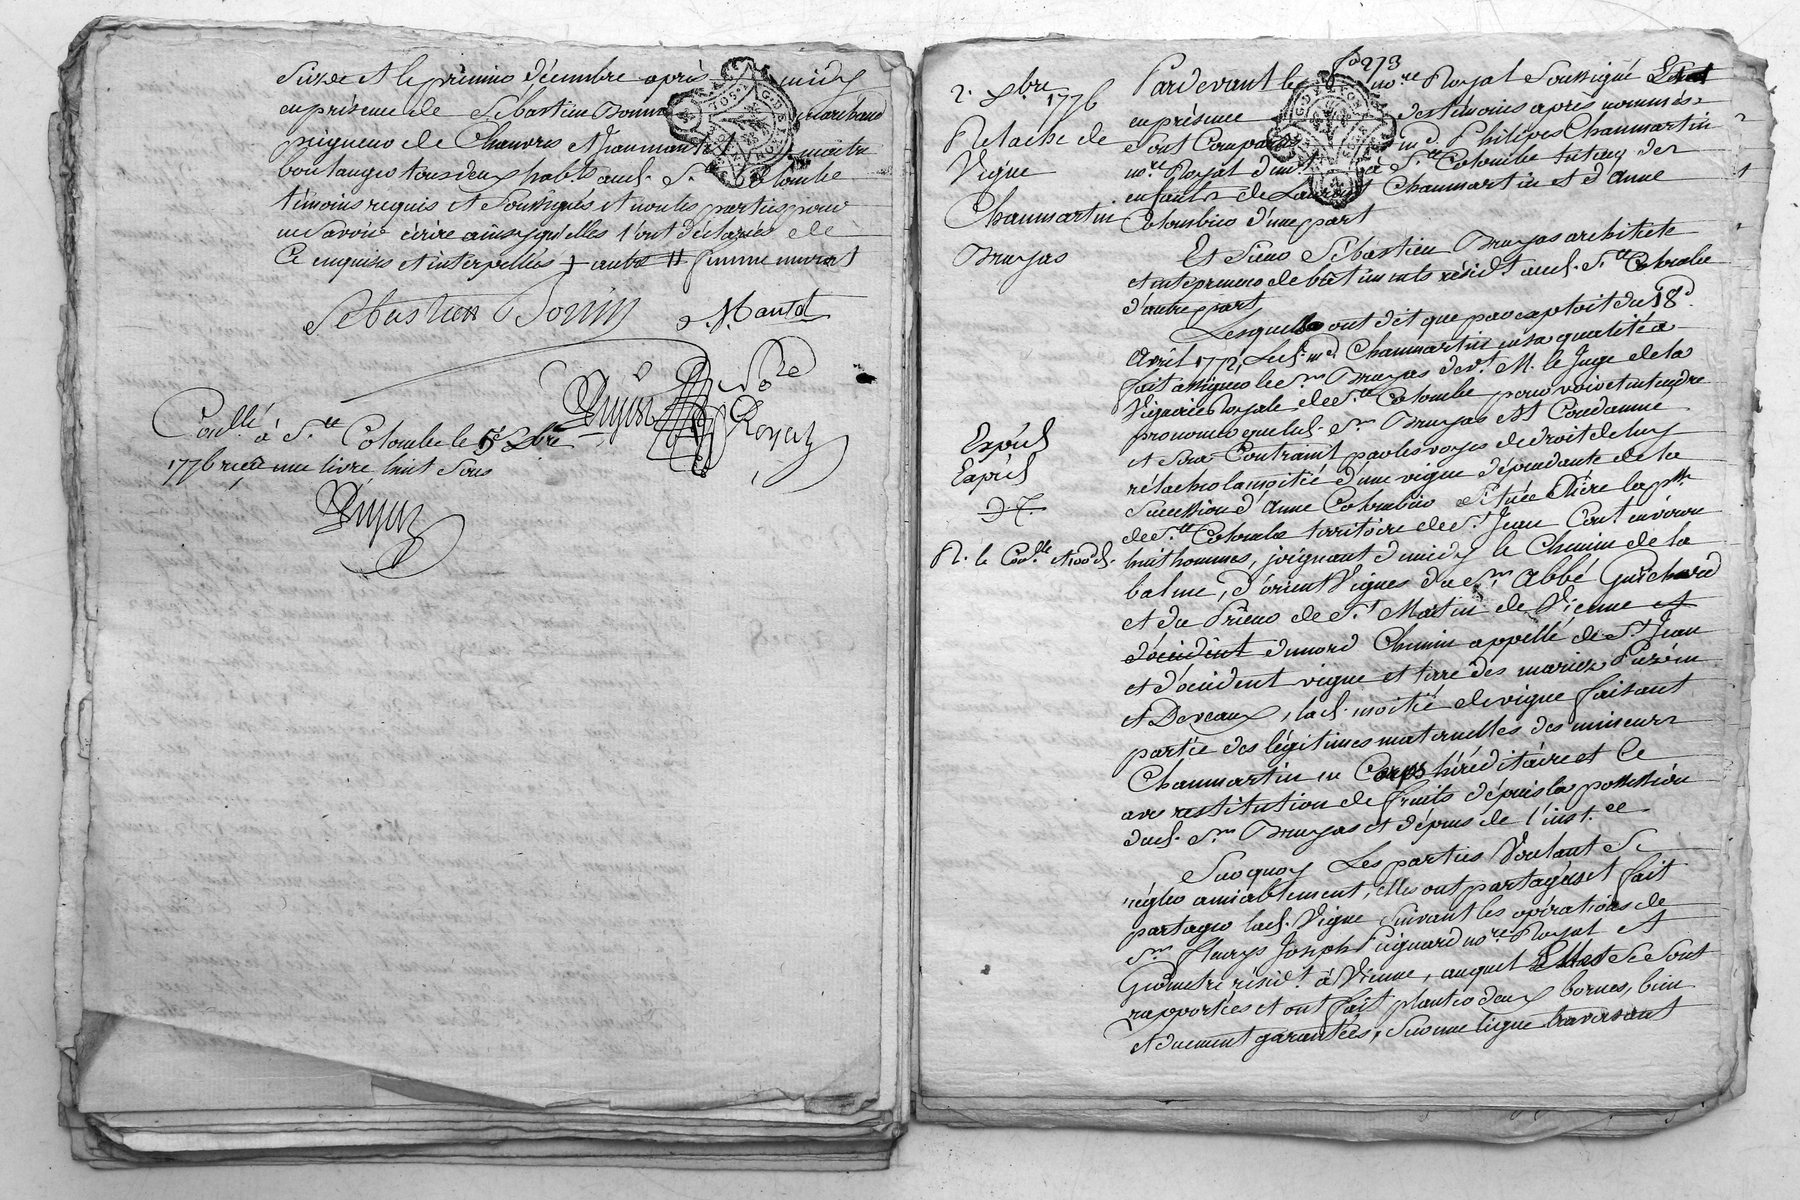 Seize et le premier décembre après midy
en présence de Sébastien Bonin marchand
peigneur de Chanvres et maitre
boulanger tous deux habts. aud. Ste. Colombe
témoins requis et Soussignés et non les parties pour
ne Savoir écrire ainsy qu'elles l'ont déclaré de
Ce enquises et interpellées
Sébastien Bonin
Nore
Royal
Con.llé à Ste. Colombe le 5e Xbre
1776 reçu une livre huit Sous
fo 273
2. Xbre 1776
Relache de
Vigne
Chaumartin
Bruyas
Expéd.
Expéd.
R. le Con.lle
Pardevant le nore Royal Soussigné
en présence des témoins après nommés
Sont Comparus me Philipes Chaumartin
nore Royal à Ste Colombe tuteur des
enfants de Laurent Chaumartin et d'Anne
Colombier d'une part
Et Sieur Sébastien Bruyas architecte
et entrepreneur de bâtiments résidt. aud. Ste Colombe
d'autre part
Lesquels ont dit que par exploit du 18e
Avril 1772, Led. me. Chaumartin en sa qualité a
fait assigner le Sr Bruyas devt. M. le Juge de la
Viguerie Royale de Ste Colombe pour voir et entendre
prononcer que led. Sr Bruyas est Condamné
et Sera Contraint par les voyes de droit de luy
relacher la moitié d'une vigne dépendante de la
Succession d'Anne Colombier Située Rière la psse
de Ste Colombe territoire de St Jean Cont. environ
huit hommes, joignant d'midy le Chemin de la
balme, d'orient Vignes du Sr Abbé Guichard
et du Prieur de St Martin de Vienne et
d'occident dunord Chemin appellé de St Jean
et d'occident vigne et terre des mariez Puzin
et Deveaux, lad. moitié de vigne faisant
partie des légitimes maternelles des mineurs
Chaumartin en Corps héréditaire et Ce
avec restitution de fruits depuis la possession
dud. Sr Bruyas et dépens de l'instce
Sur quoy Les parties Voulant Se
régler amiablement, elles ont partagées et fait
partager lad. Vigne Suivant les opérations de
Sr Fleury Joseph Peignard nore Royal et
Géometre résidt à Vienne, auquel Elles Se Sont
rapportées et ont fait planter deux bornes, bien
et duement garantées, Sur une ligne traversant